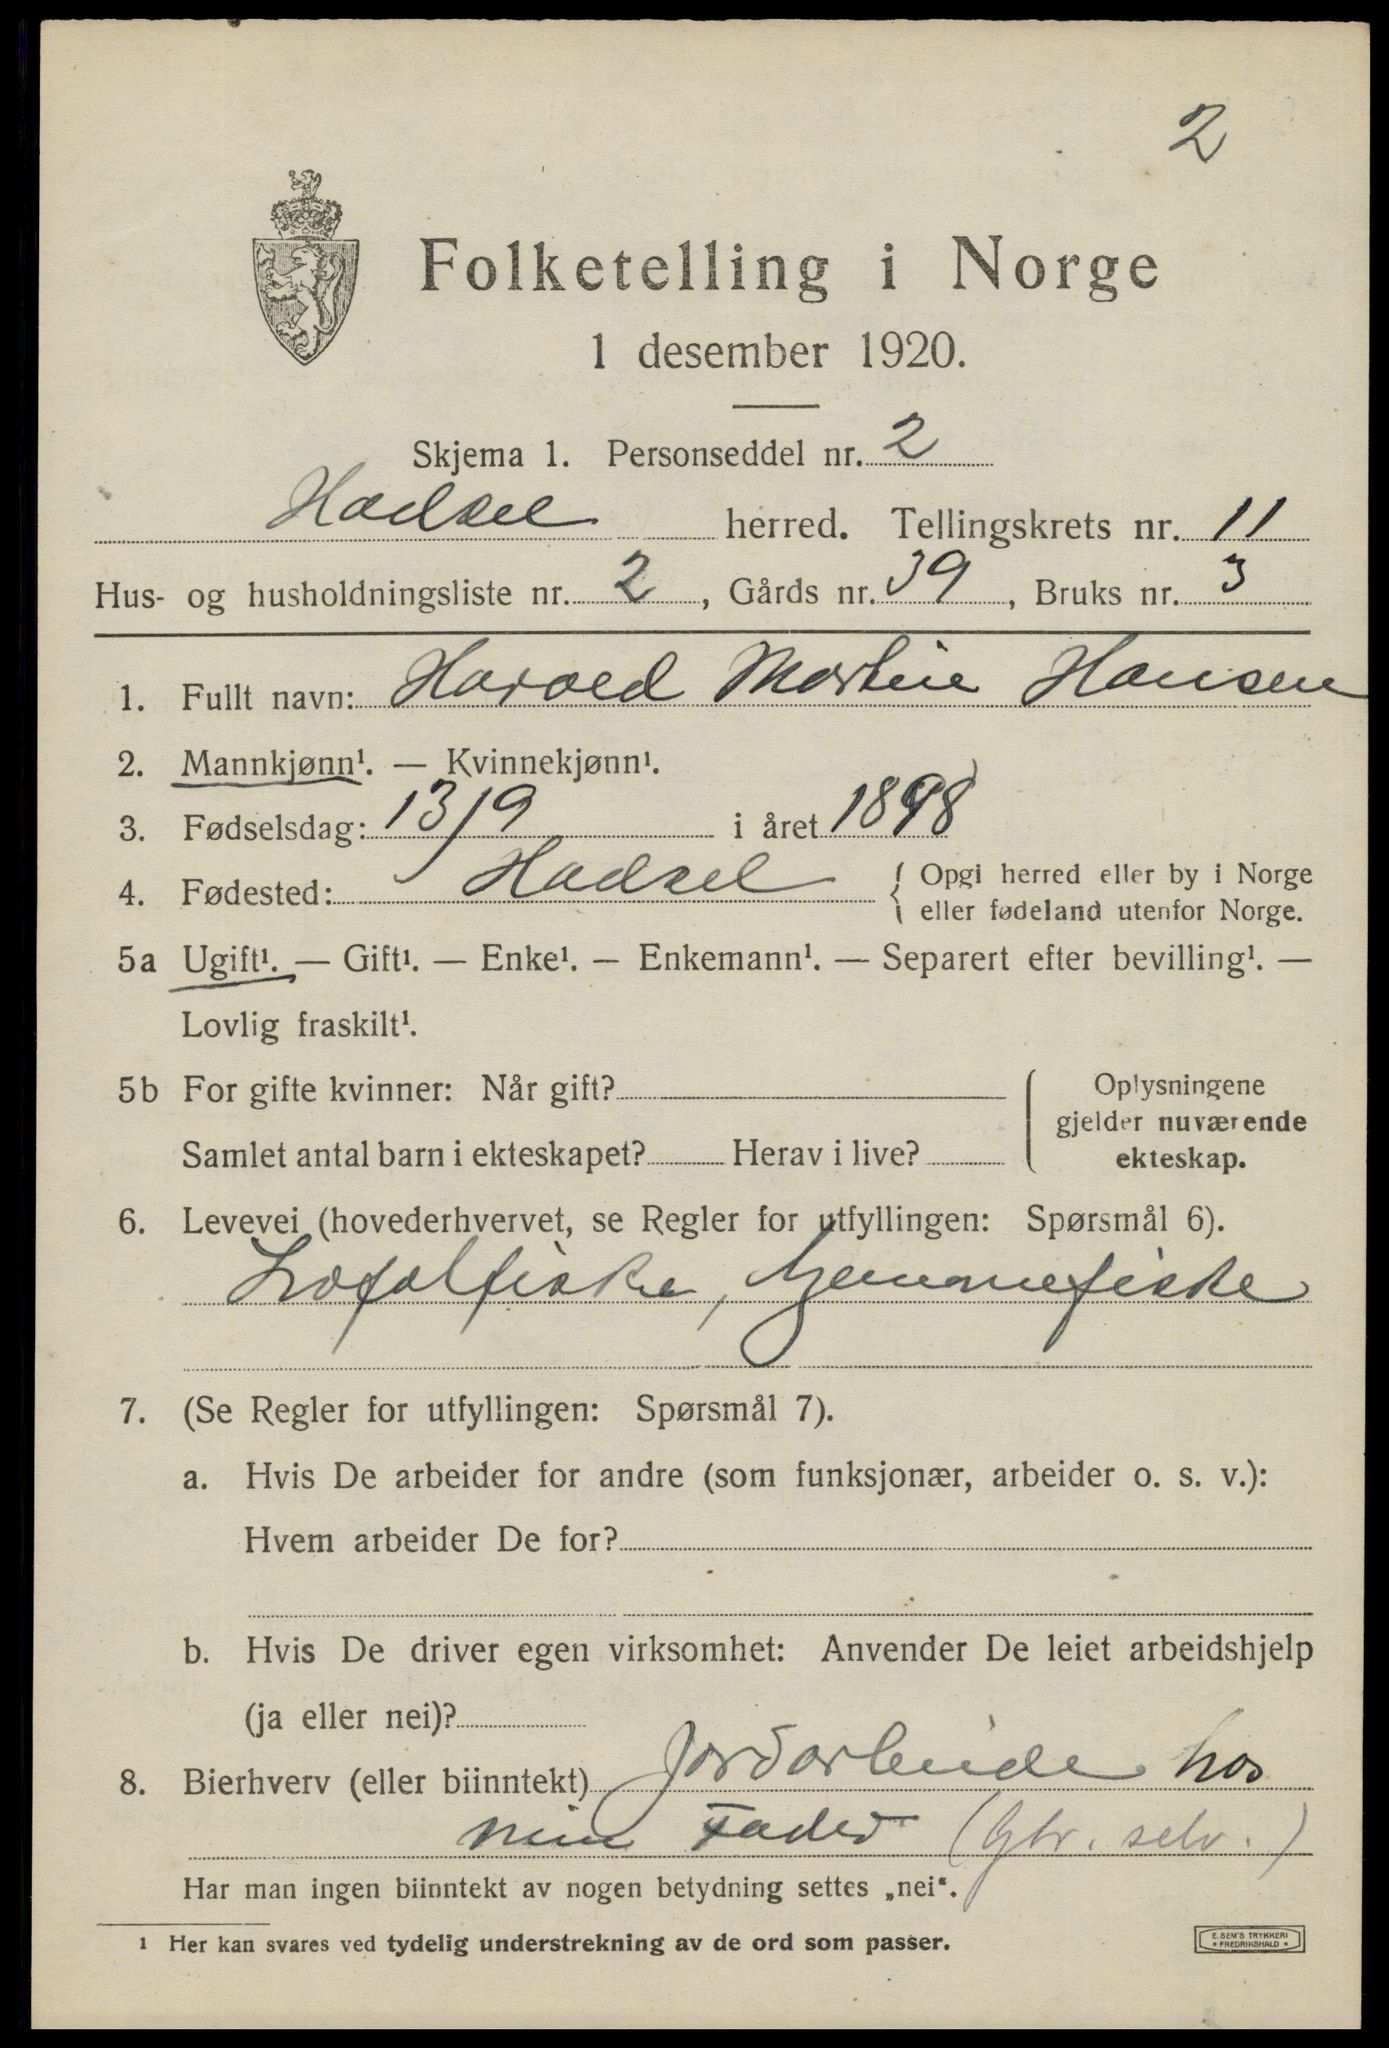 2
Folketelling i Norge
1 desember 1920.
Skjema 1. Personseddel nr. 2
Hadsel herred. Tellingskrets nr. 11
Hus- og husholdningsliste nr. 2, Gårds nr. 39, Bruks nr. 3
1. Fullt navn: Harald Martin Hansen
2. Mannkjønn¹. — Kvinnekjønn¹.
3. Fødselsdag: 13/9 i året 1898
4. Fødested: Hadsel { Opgi herred eller by i Norge
eller fødeland utenfor Norge.
5a Ugift¹. — Gift¹. — Enke¹. — Enkemann¹. — Separert efter bevilling¹. —
Lovlig fraskilt¹.
5b For gifte kvinner: Når gift? { Oplysningene
gjelder nuværende
Samlet antal barn i ekteskapet? Herav i live? ekteskap.
6. Levevei (hovederhvervet, se Regler for utfyllingen: Spørsmål 6).
Lofotfiske, hjemmefiske
7. (Se Regler for utfyllingen: Spørsmål 7).
a. Hvis De arbeider for andre (som funksjonær, arbeider o. s. v.):
Hvem arbeider De for?
b. Hvis De driver egen virksomhet: Anvender De leiet arbeidshjelp
(ja eller nei)?
8. Bierhverv (eller biinntekt) Jordarbeide hos
min Fader (Gbr. selv.)
Har man ingen biinntekt av nogen betydning settes „nei“.
¹ Her kan svares ved tydelig understrekning av de ord som passer.
E. SEM'S TRYKKERI
• FREDRIKSHALD •